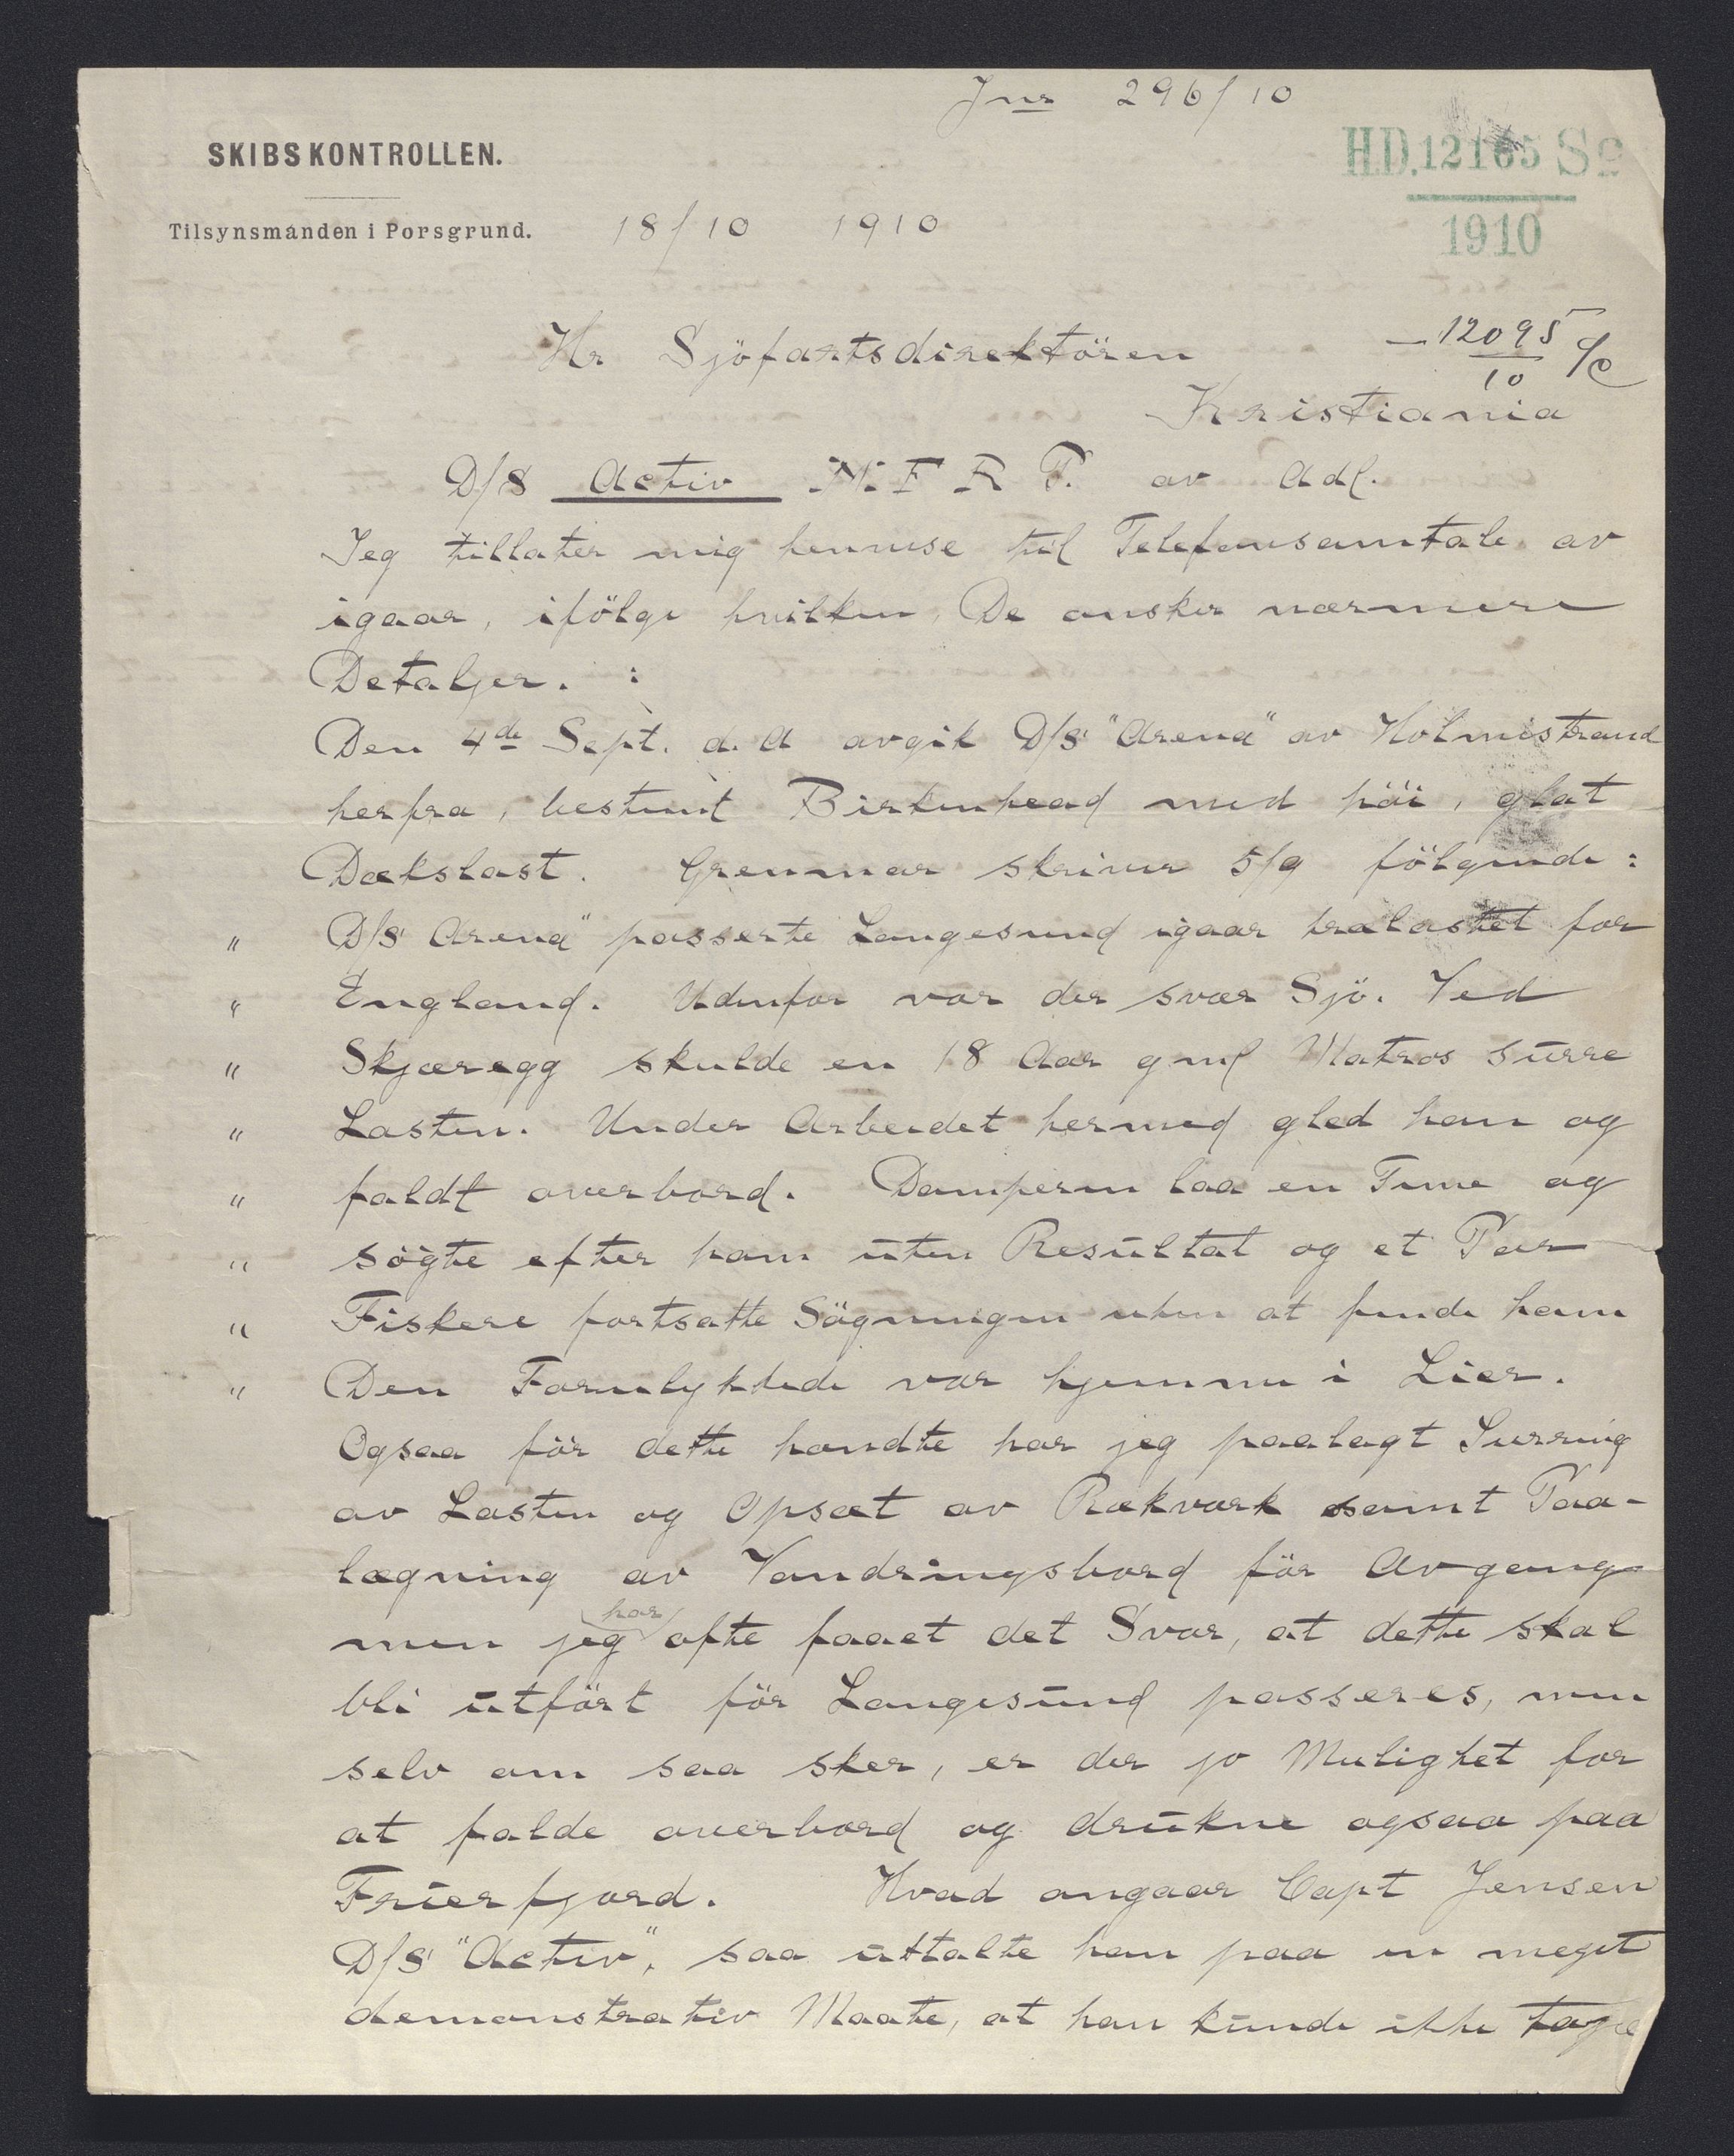 Jnr 296/10
SKIBSKONTROLLEN.
H.D. 12165 Sc
1910
Tilsynsmanden i Porsgrund. 18/10 1910
Hr Sjöfartsdirektören
12095
10
Kristiania
D/S Activ M. F R T. av Adl.
Jeg tillater mig henvise til Telefonsamtale av
igaar, ifölge hvilken, De ønsker nærmere
Detaljer. :
Den 4de Sept. d. A avgik D/S "Arena" av Holmestrand
herfra, bestemt Birkenhead med höi, glat
Dækslast. Grenmar skriver 5/9 fölgende :
" D/S Arena" passerte Langesund igaar trælastet for
" England. Udenfor var der svær Sjö. Ved
" Skjæregg skulde en 18 Aar gml Matros surre
" Lasten. Under Arbeidet hermed gled han og
" faldt overbord. Damperen laa en Time og
" sögte efter ham uten Resultat og et Par
" Fiskere fortsatte Sögningen uten at finde ham
" Den Forulykkede var hjemme i Lier.
Ogsaa för dette hændte har jeg paalagt Surring
av Lasten og Opsæt av Rækværk samt Paa-
lægning av Vandringsbord för Avgang
men jeg har ofte faaet det Svar, at dette skal
bli utfört för Langesund passeres, men
selv om saa sker, er der jo Mulighet for
at falde overbord og drukne ogsaa paa
Frierfjord. Hvad angaar Capt Jensen
D/S "Activ", saa uttalte han paa en meget
demonstrativ Maate, at han kunde ikke tage